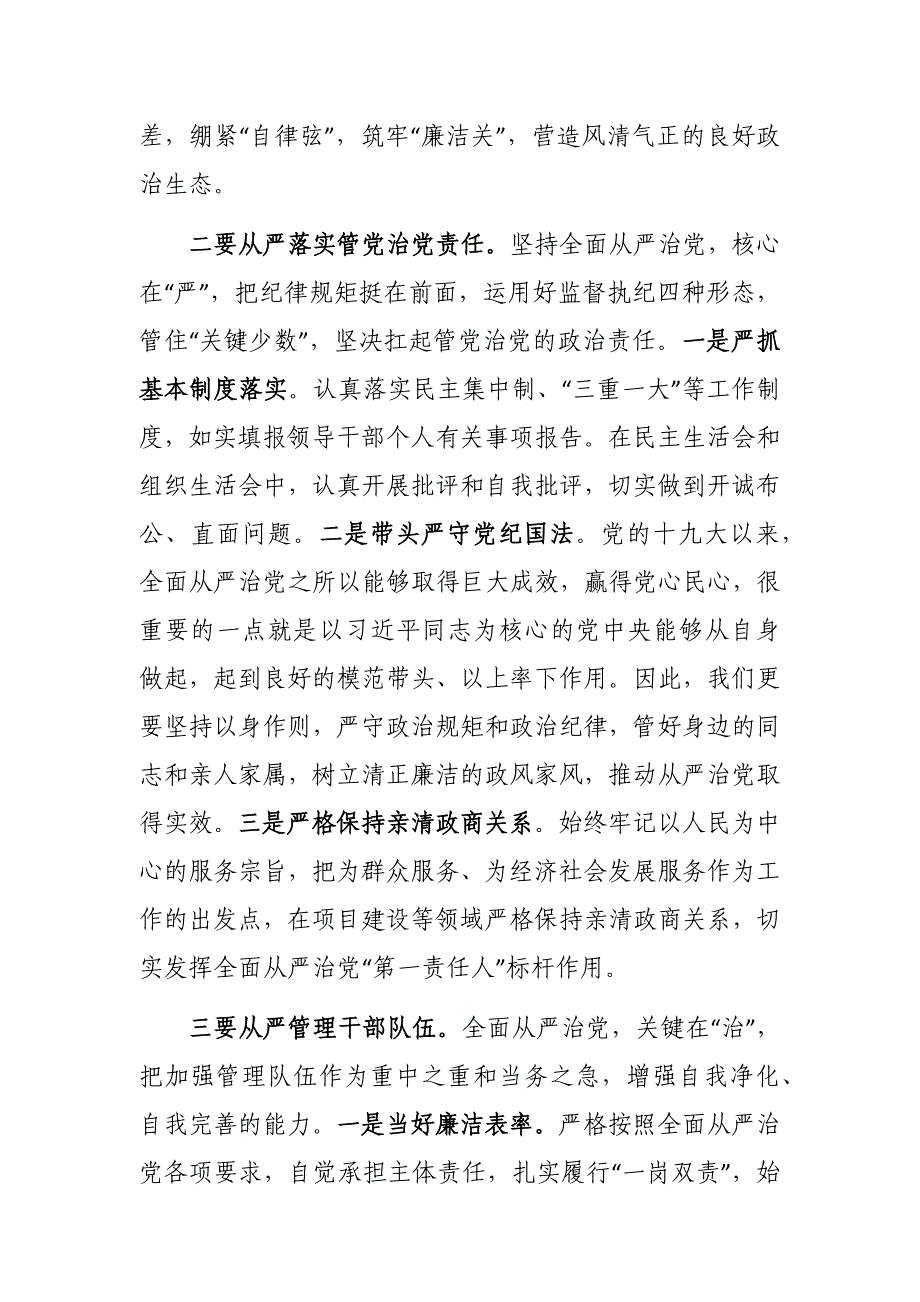 差，绷紧“自律弦”，筑牢“廉洁关”，营造风清气正的良好政
治生态。
二要从严落实管党治党责任。坚持全面从严治党，核心
在“严”，把纪律规矩挺在前面，运用好监督执纪四种形态，
管住“关键少数”，坚决扛起管党治党的政治责任。一是严抓
基本制度落实。认真落实民主集中制、“三重一大”等工作制
度，如实填报领导干部个人有关事项报告。在民主生活会和
组织生活会中，认真开展批评和自我批评，切实做到开诚布
公、直面问题。二是带头严守党纪国法。党的十九大以来，
全面从严治党之所以能够取得巨大成效，赢得党心民心，很
重要的一点就是以习近平同志为核心的党中央能够从自身
做起，起到良好的模范带头、以上率下作用。因此，我们更
要坚持以身作则，严守政治规矩和政治纪律，管好身边的同
志和亲人家属，树立清正廉洁的政风家风，推动从严治党取
得实效。三是严格保持亲清政商关系。始终牢记以人民为中
心的服务宗旨，把为群众服务、为经济社会发展服务作为工
作的出发点，在项目建设等领域严格保持亲清政商关系，切
实发挥全面从严治党“第一责任人”标杆作用。
三要从严管理干部队伍。全面从严治党，关键在“治”，
把加强管理队伍作为重中之重和当务之急，增强自我净化、
自我完善的能力。一是当好廉洁表率。严格按照全面从严治
党各项要求，自觉承担主体责任，扎实履行“一岗双责”，始